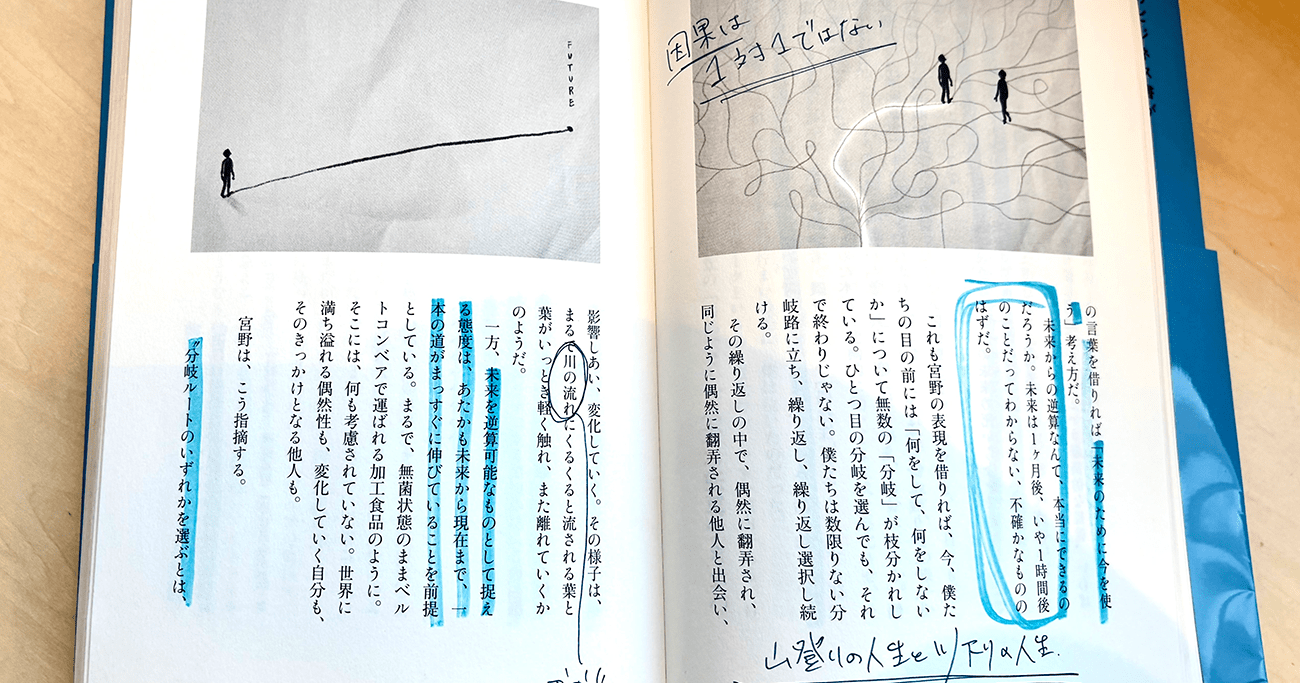 因果は
1対1ではない
の言葉を借りれば「未来のために今を使
う」考え方だ。
未来からの逆算なんて、本当にできるの
だろうか。未来は1ヶ月後、いや1時間後
のことだってわからない、不確かなものの
はずだ。
これも宮野の表現を借りれば、今、僕た
ちの目の前には「何をして、何をしない
か」について無数の「分岐」が枝分かれし
ている。ひとつ目の分岐を選んでも、それ
で終わりじゃない。僕たちは数限りない分
岐路に立ち、繰り返し、繰り返し選択し続
ける。
その繰り返しの中で、偶然に翻弄され、
同じように偶然に翻弄される他人と出会い、
山登りの人生と川下りの人生.
FUTURE
影響しあい、変化していく。その様子は、
まるで川の流れにくるくると流される葉と
葉がいっとき軽く触れ、また離れていくか
のようだ。
一方、未来を逆算可能なものとして捉え
る態度は、あたかも未来から現在まで、一
本の道がまっすぐに伸びていることを前提
としている。まるで、無菌状態のままベル
トコンベアで運ばれる加工食品のように。
そこには、何も考慮されていない。世界に
満ち溢れる偶然性も、変化していく自分も、
そのきっかけとなる他人も。
宮野は、こう指摘する。
〝分岐ルートのいずれかを選ぶとは、